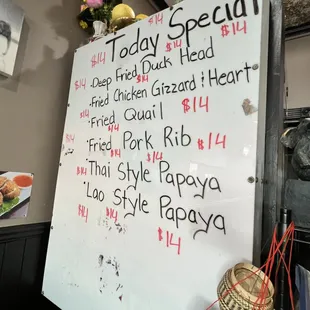 Today Special
$14 $14 $14
Deep Fried Duck Head
$14 $14
Fried Chicken Gizzard & Heart
$14 $14
Fried Quail
$14 $14
Fried Pork Rib
$14 $14 $14
Thai Style Papaya
$14
Lao Style Papaya
$14 $14
$14